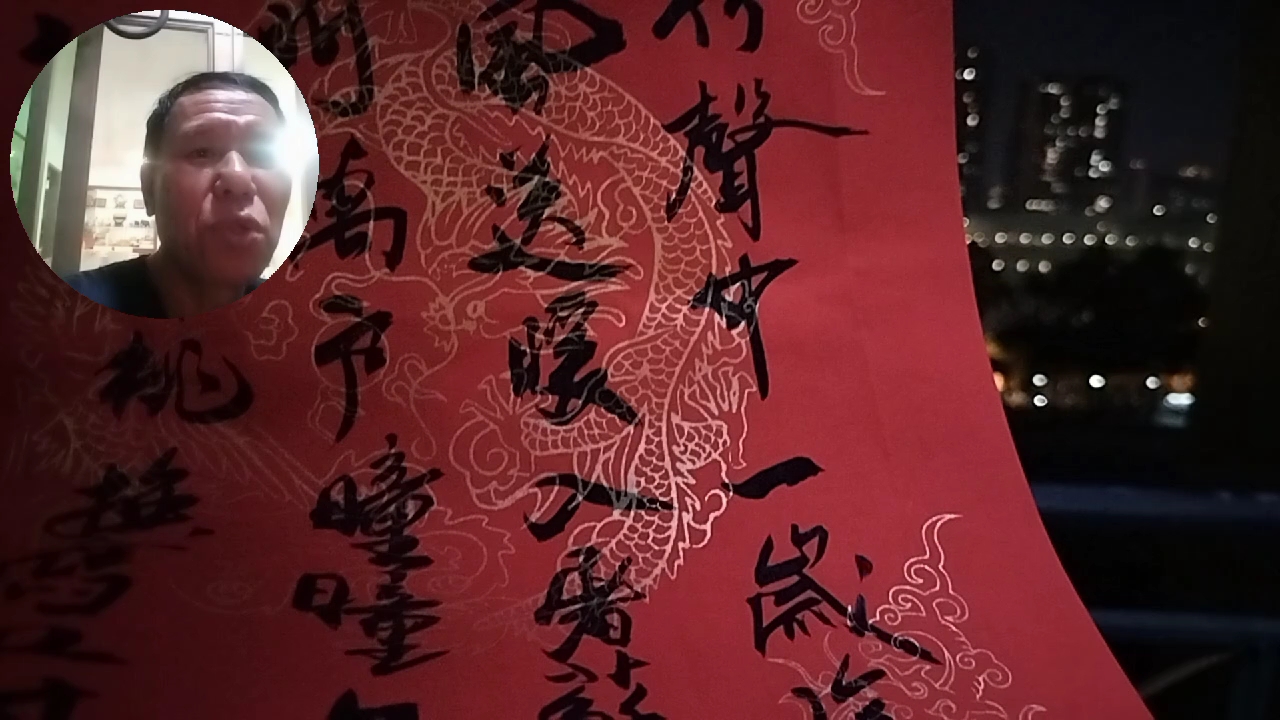 竹聲中一歲除
風送暖入屠蘇
門萬戶曈曈日
桃換舊